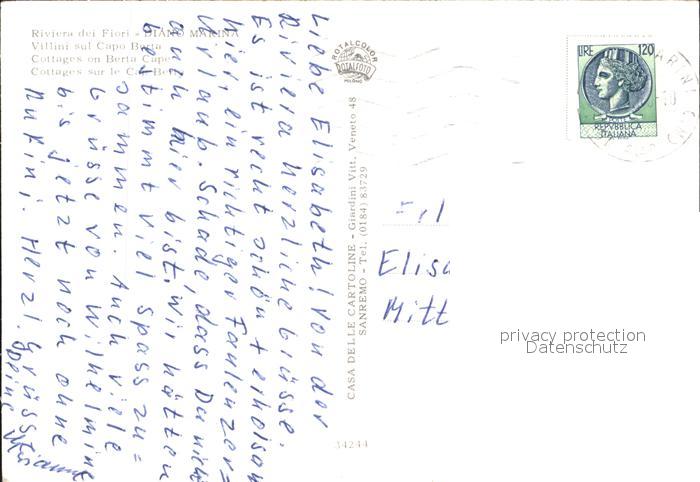 Riviera dei Fiori - DIANO MARINA
Villini sul Capo Berta
Cottages on Berta Cape
Cottages sur le Cap Berta
Liebe Elisabeth! Von der
Riviera herzliche Grüsse.
Es ist recht schön + erholsam
hier, ein richtiger Faulenzer=
Urlaub. Schade, dass Du nicht
auch hier bist. Wir hätten
bestimmt viel Spass zu=
sammen. Auch viele
Grüsse von Wilhelmine
bis jetzt noch ohne
Herzl. Grüsse
Deine
ROTALCOLOR
ROTALFOTO
MILANO
CASA DELLE CARTOLINE - Giardini Vitt. Veneto 48
SANREMO - Tel. (0184) 83729
34244
LIRE 120
REPVBBLICA
ITALIANA
Elisa
Mitt
privacy protection
Datenschutz